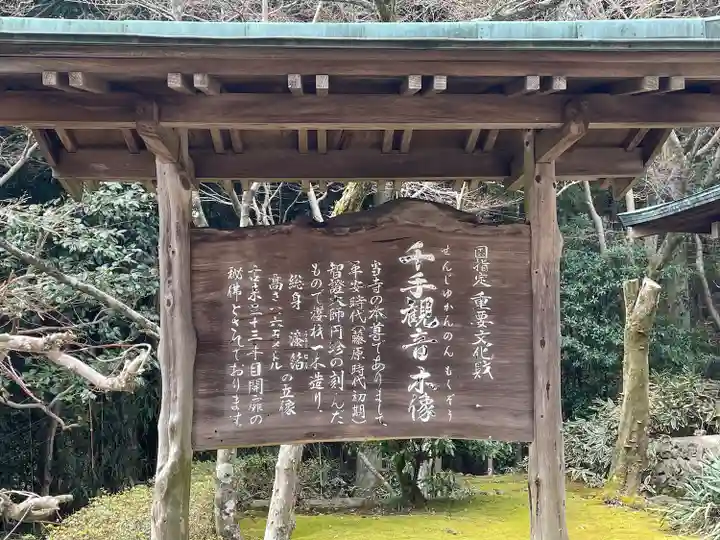 国指定 重要文化財
せんじゆかんのんもくぞう
千手観音木像
当寺の本尊でありまして、
平安時代(藤原時代初期)
智證大師円珍の刻んだ
もので櫻材一木造り、
総身 漆箔の立像
高さ一、六五メートル
古来三十三年目開扉の
秘佛とされております。